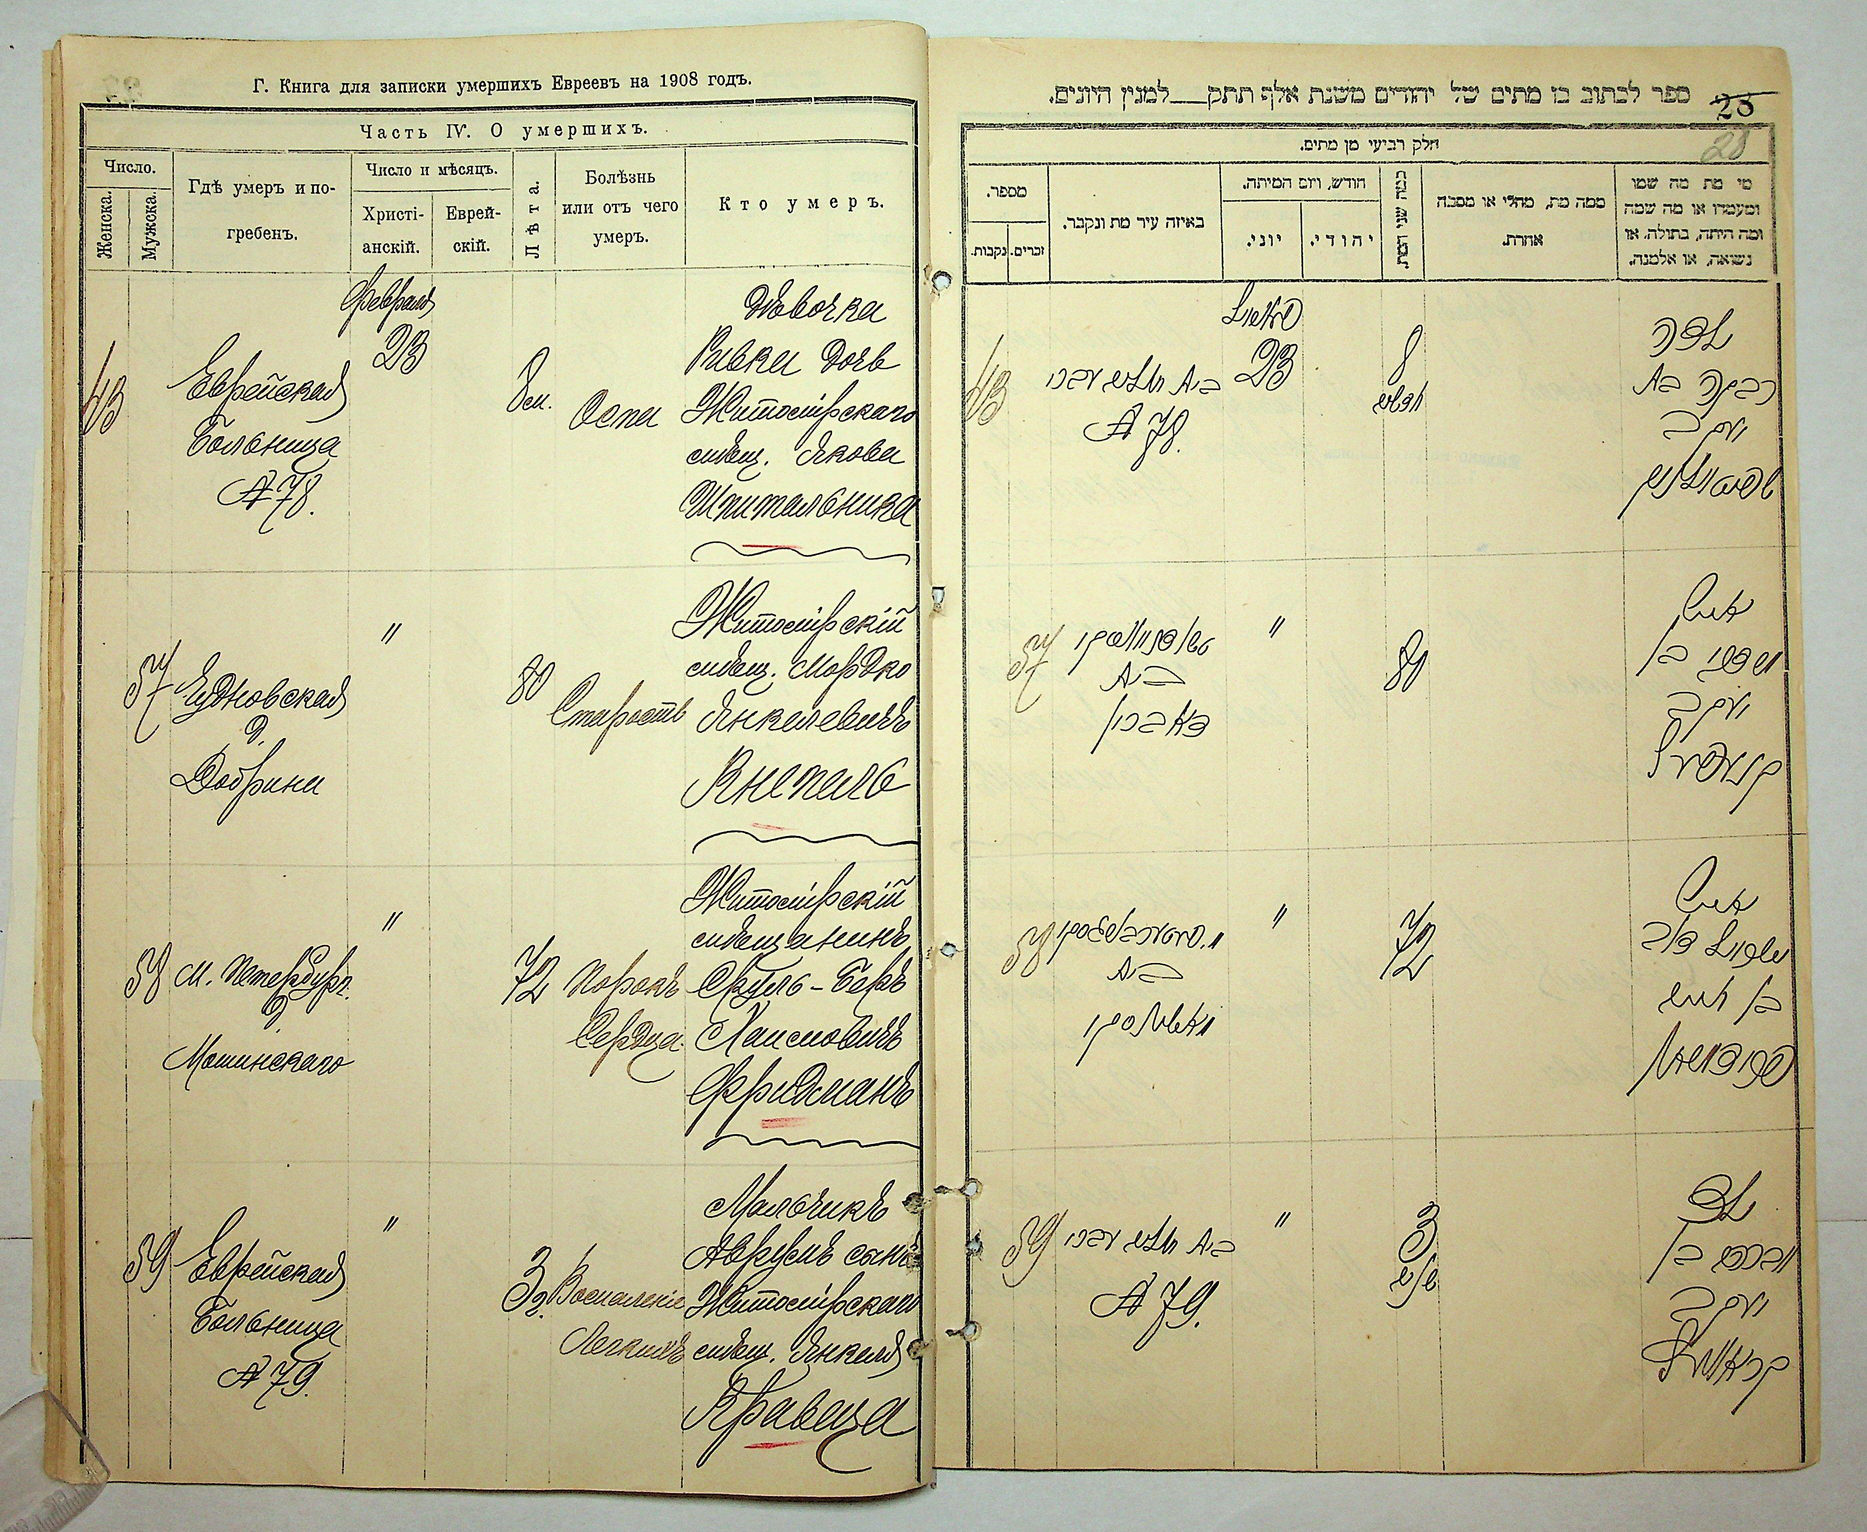 Г. Книга для записки умершихъ Евреевъ на 1908 годъ.
Часть IV. О умершихъ.
Число.
Женска.
Мужска.
Гдѣ умеръ и по-
гребенъ.
Число и мѣсяцъ.
Христі-
анскій.
Еврей-
скій.
Лѣта.
Болѣзнь
или отъ чего
умеръ.
Кто умеръ.
43
Еврейская
Больница
№ 78.
Февраля
23
8 м.
Оспа
Дѣвочка
Ривка дочь
Житомірскаго
мѣщ. Якова
Шпитальника
57
Чудновская
д.
Добрина
"
80
Старость
Житомірскій
мѣщ. Мордко
Янкелевичъ
Кнепель
58
М. Петербург.
д.
Мошинскаго
"
72
Порокъ
Сердца
Житомірскій
мѣщанинъ
Сруль-Беръ
Хаимовичъ
Фридманъ
59
Еврейская
Больница
№ 79.
"
3 г.
Воспаленіе
Легкихъ
Мальчикъ
Аврумъ сынъ
Житомірскаго
мѣщ. Янкеля
Кравеца
ספר לכתוב בו מתים של יהודים משנת אלף תתק למנין היונים.
23
28
חלק רביעי מן מתים.
מספר.
זכרים.
נקבות.
באיזה עיר מת ונקבר.
חודש, ויום המיתה.
יוני.
יהודי.
כמה שני המת.
ממה מת, מחלי או מסבה
אחרת.
מי מת מה שמו
ומעמדו או מה שמה
ומה היתה, בתולה, או
נשואה, או אלמנה.
43
בית חולים עברי
№ 78.
23
8
חדשים
ילדה
רבקה בת
יעקב
57
בית
"
80
איש
מרדכי בן
יעקב
58
בית
"
72
איש
בן חיים
פרידמאן
59
בית חולים עברי
№ 79.
"
3
שנים
ילד
אברהם בן
יעקב